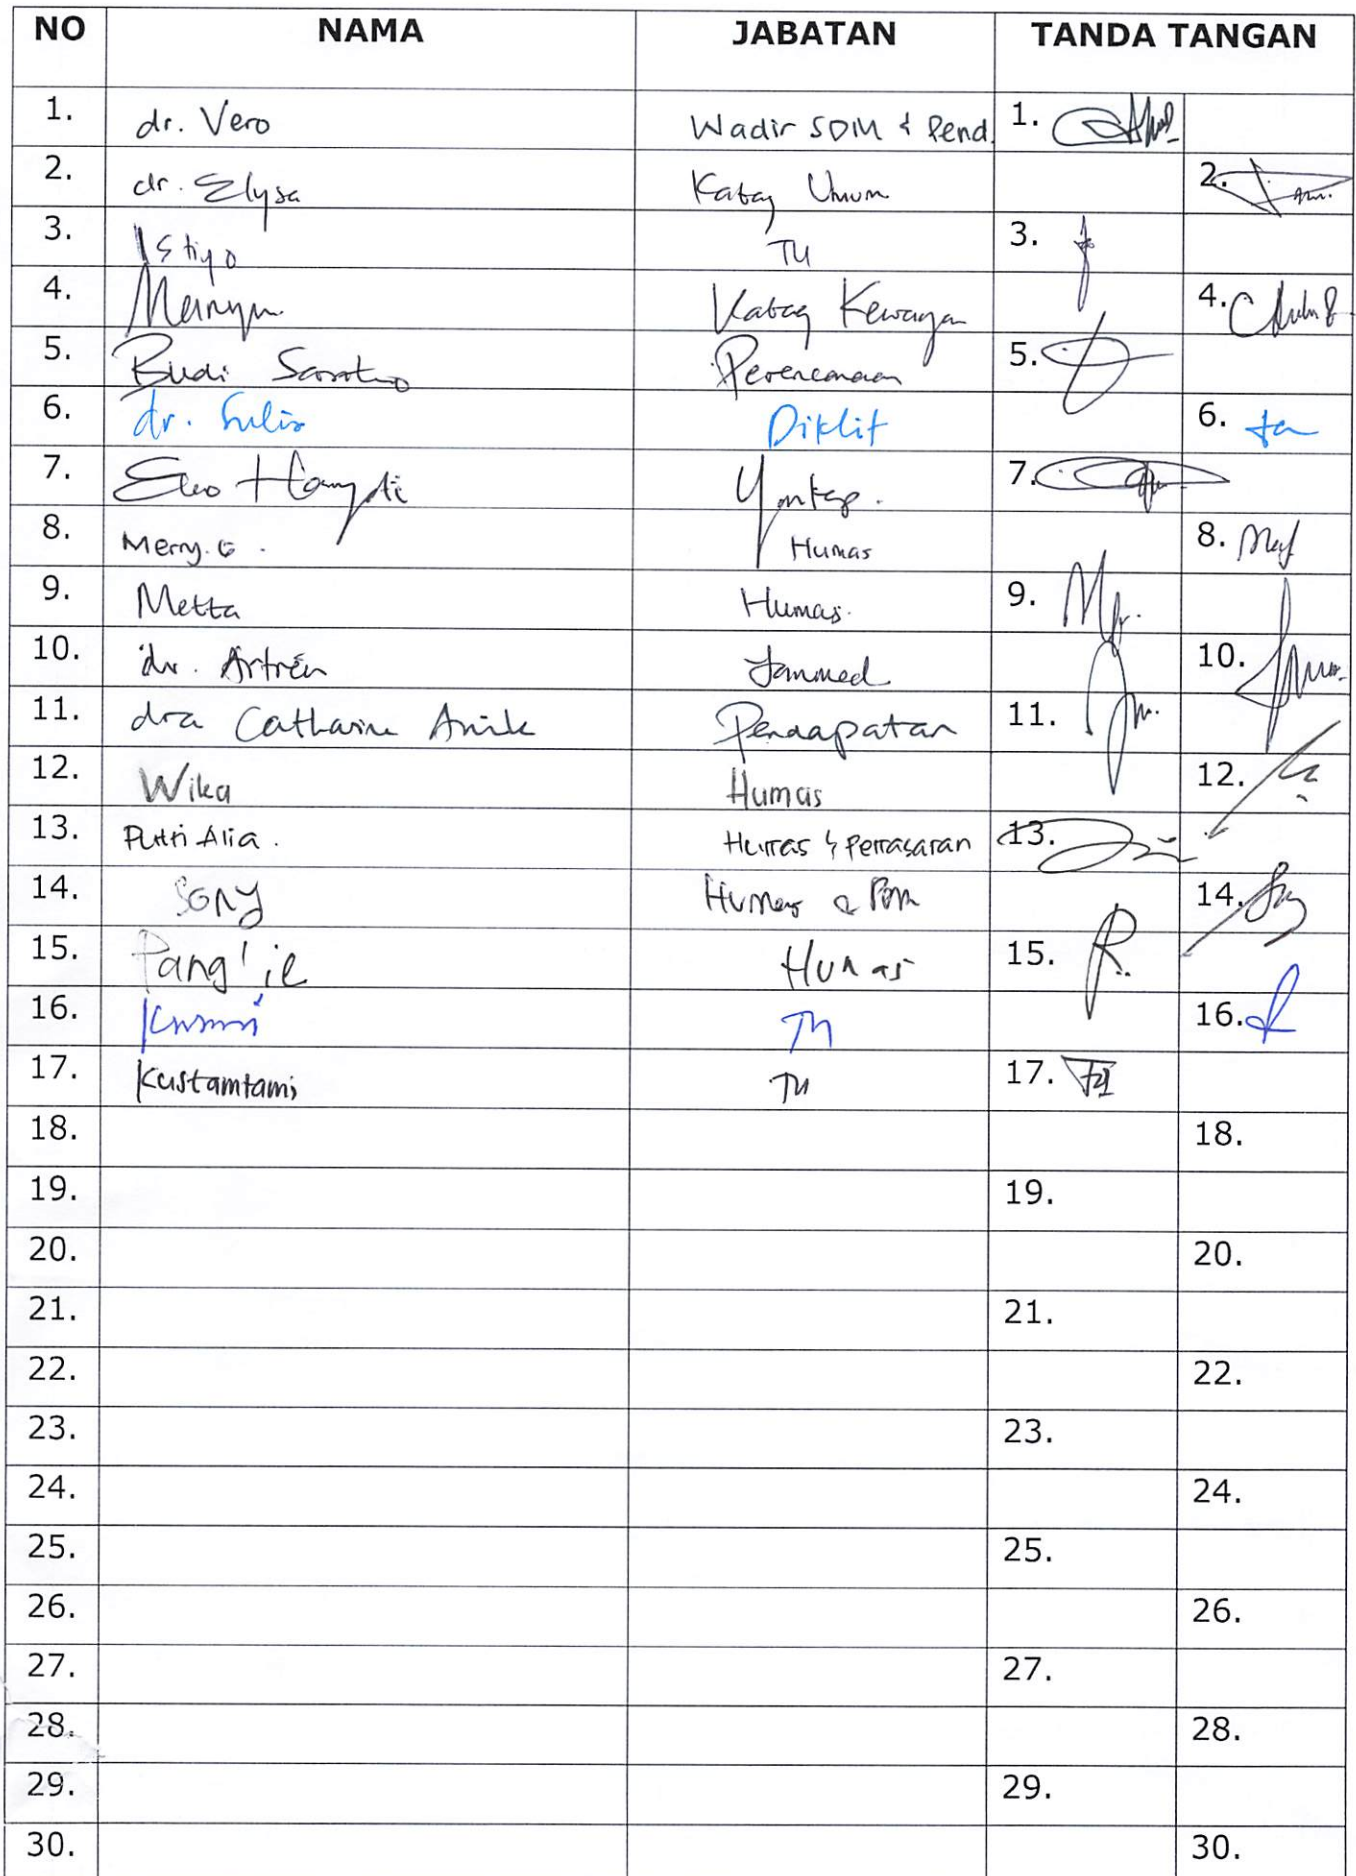 NO NAMA JABATAN TANDA TANGAN
1. dr. Vero Wadir SDM & Pend. 1.
2. dr. Elysa Kabag Umum 2.
3. Istiyo TU 3.
4. Kabag 4.
5. Budi Perencanaan 5.
6. dr. Sulis Diklit 6.
7. 7.
8. Merry. G. Humas 8.
9. Metta Humas. 9.
10. dr. Janmed 10.
11. dra Catharine Anik Pendapatan 11.
12. Wika Humas 12.
13. Putri Alia. Humas & Pemasaran 13.
14. Sony Humas & 14.
15. Humas 15.
16. TU 16.
17. Kustamtami TU 17.
18. 18.
19. 19.
20. 20.
21. 21.
22. 22.
23. 23.
24. 24.
25. 25.
26. 26.
27. 27.
28. 28.
29. 29.
30. 30.